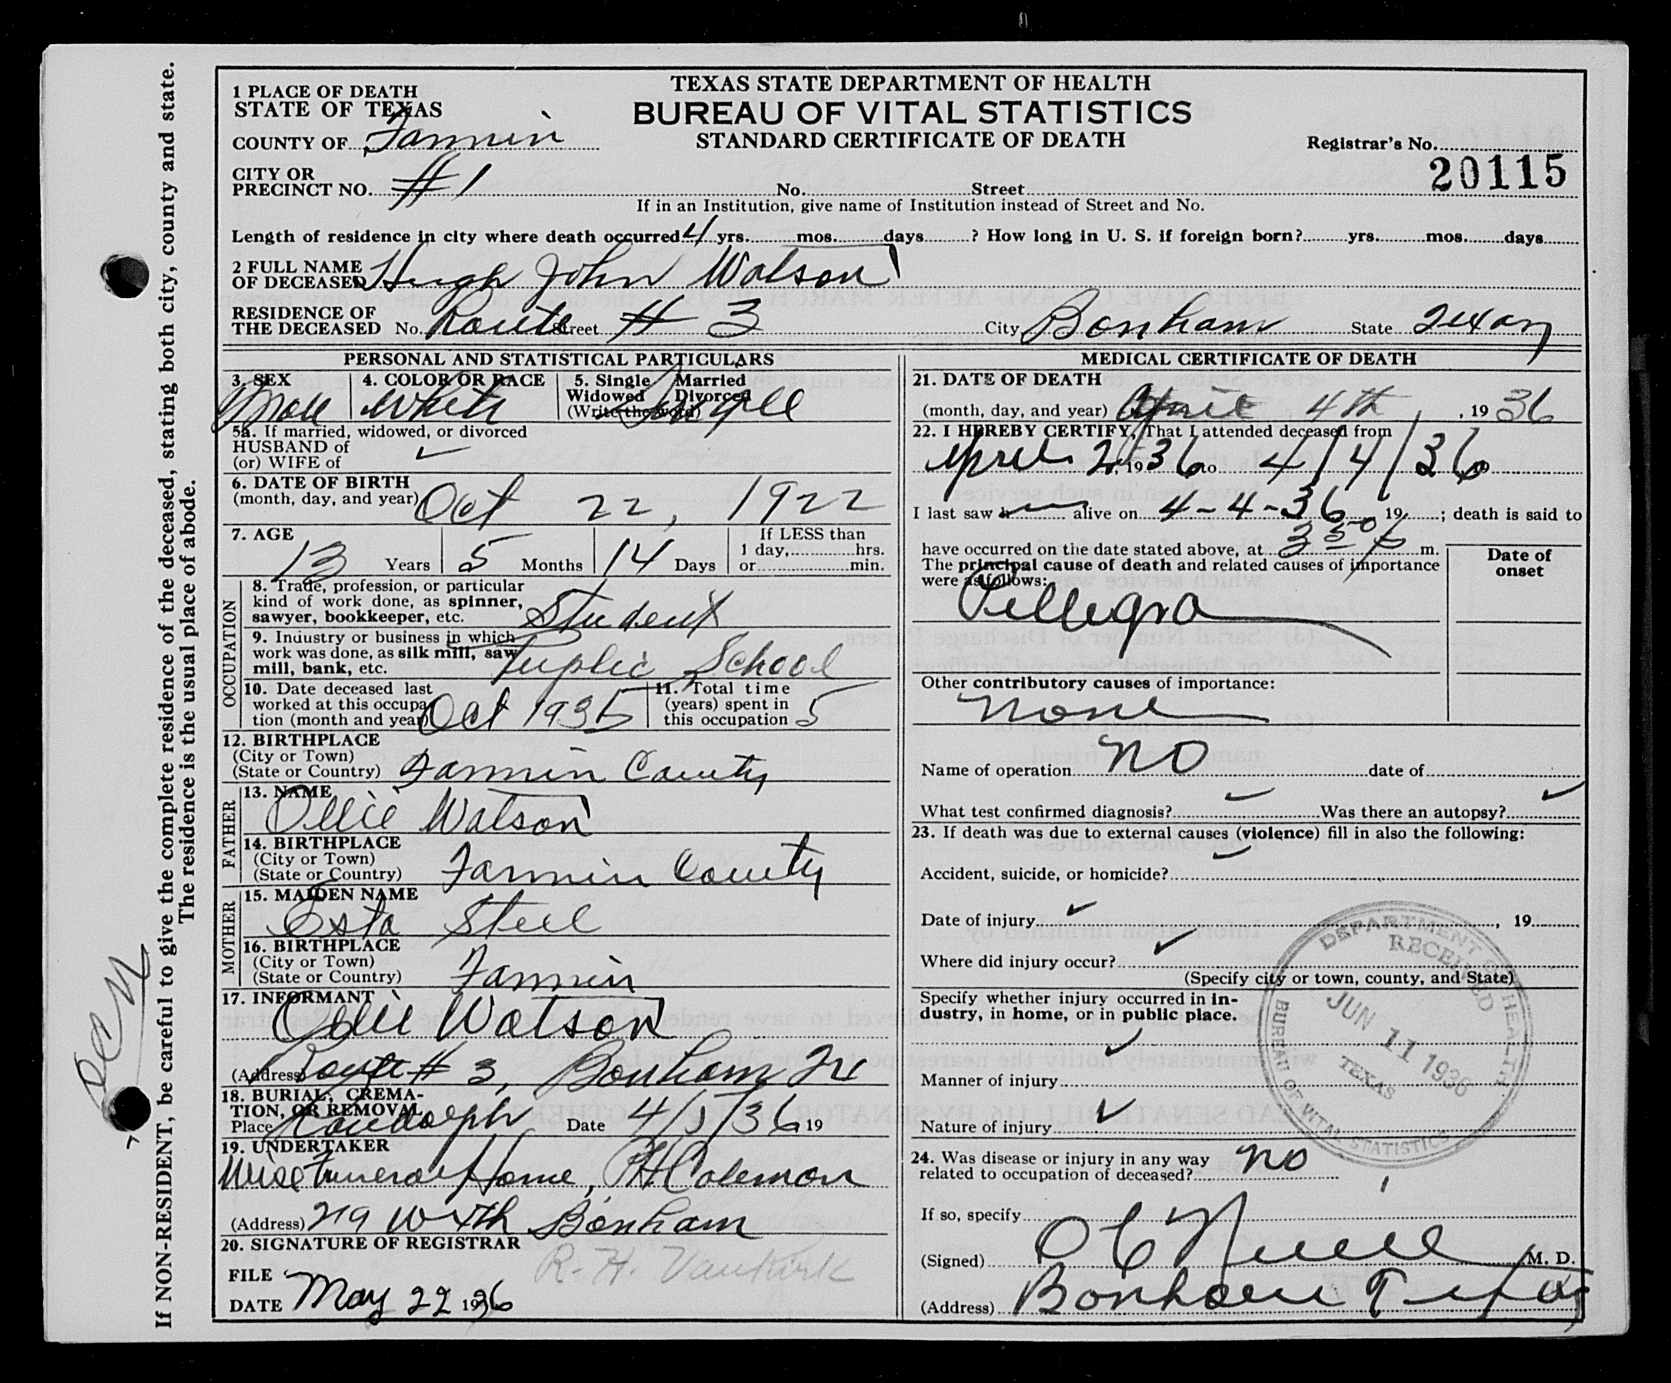 TEXAS STATE DEPARTMENT OF HEALTH
BUREAU OF VITAL STATISTICS
STANDARD CERTIFICATE OF DEATH
1 PLACE OF DEATH
STATE OF TEXAS
COUNTY OF Fannin
Registrar's No.
20115
CITY OR
PRECINCT NO. #1 No. Street
If in an Institution, give name of Institution instead of Street and No.
Length of residence in city where death occurred 4 yrs. mos. days ? How long in U. S. if foreign born? yrs. mos. days
2 FULL NAME
OF DECEASED Hugh John Watson
RESIDENCE OF
THE DECEASED No. Route Street # 3 City Bonham State Texas
PERSONAL AND STATISTICAL PARTICULARS
3. SEX Male
4. COLOR OR RACE White
5. Single Married
Widowed Divorced
(Write the word) Single
5a. If married, widowed, or divorced
HUSBAND of
(or) WIFE of
6. DATE OF BIRTH
(month, day, and year) Oct 22, 1922
7. AGE 13 Years 5 Months 14 Days
If LESS than
1 day, hrs.
or min.
OCCUPATION
8. Trade, profession, or particular
kind of work done, as spinner,
sawyer, bookkeeper, etc. Student
9. Industry or business in which
work was done, as silk mill, saw
mill, bank, etc. Puplic School
10. Date deceased last
worked at this occupa-
tion (month and year) Oct 1935
11. Total time
(years) spent in
this occupation 5
12. BIRTHPLACE
(City or Town)
(State or Country) Fannin County
FATHER
13. NAME
Ollie Watson
14. BIRTHPLACE
(City or Town)
(State or Country) Fannin County
MOTHER
15. MAIDEN NAME
Esta Steel
16. BIRTHPLACE
(City or Town)
(State or Country) Fannin
17. INFORMANT
Ollie Watson
(Address) Route # 3, Bonham Tx
18. BURIAL, CREMA-
TION, OR REMOVAL
Place Randolph Date 4/5/36 19
19. UNDERTAKER
Wise Funeral Home, PH Coleman
(Address) 219 W 4th Bonham
20. SIGNATURE OF REGISTRAR
R. H. Vankirk
FILE
DATE May 22 1936
MEDICAL CERTIFICATE OF DEATH
21. DATE OF DEATH
(month, day, and year) April 4th, 1936
22. I HEREBY CERTIFY, That I attended deceased from
April 2, 1936 to 4/4/36
I last saw him alive on 4-4-36 19 ; death is said to
have occurred on the date stated above, at 3 50 P m.
The principal cause of death and related causes of importance
were as follows:
Date of
onset
Pellegra
Other contributory causes of importance:
None
Name of operation NO date of
What test confirmed diagnosis? Was there an autopsy?
23. If death was due to external causes (violence) fill in also the following:
Accident, suicide, or homicide?
Date of injury , 19
Where did injury occur?
(Specify city or town, county, and State)
Specify whether injury occurred in in-
dustry, in home, or in public place.
Manner of injury
Nature of injury
24. Was disease or injury in any way
related to occupation of deceased? no
If so, specify
(Signed) M. D.
(Address) Bonham Texas
DEPARTMENT OF HEALTH
RECEIVED
JUN 11 1936
TEXAS
BUREAU OF VITAL STATISTICS
If NON-RESIDENT, be careful to give the complete residence of the deceased, stating both city, county and state.
The residence is the usual place of abode.